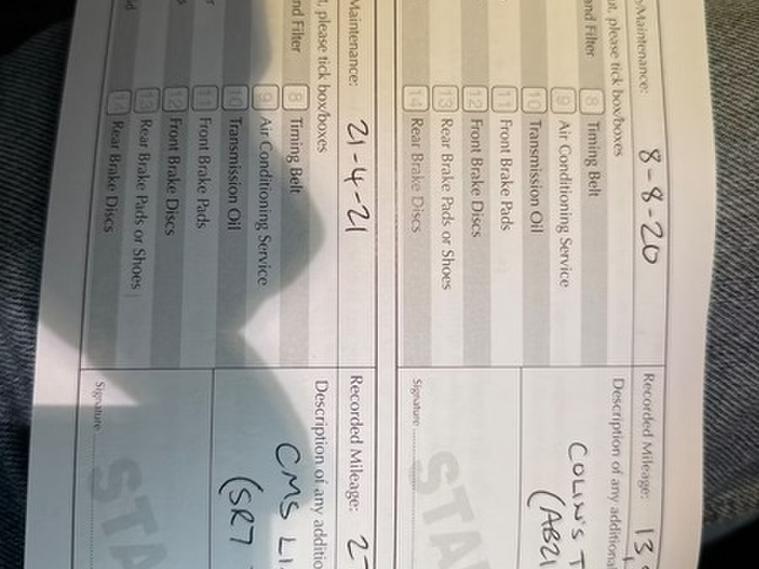 Maintenance: 8-8-20 Recorded Mileage: 13,
please tick box/boxes Description of any additional
and Filter 8 Timing Belt
9 Air Conditioning Service COLIN'S
10 Transmission Oil (AB21
11 Front Brake Pads
12 Front Brake Discs
13 Rear Brake Pads or Shoes STA
14 Rear Brake Discs Signature
Maintenance: 21-4-21 Recorded Mileage: 2
please tick box/boxes Description of any additio
nd Filter 8 Timing Belt CMS
9 Air Conditioning Service
10 Transmission Oil (SR7
11 Front Brake Pads
12 Front Brake Discs
13 Rear Brake Pads or Shoes STA
14 Rear Brake Discs Signature